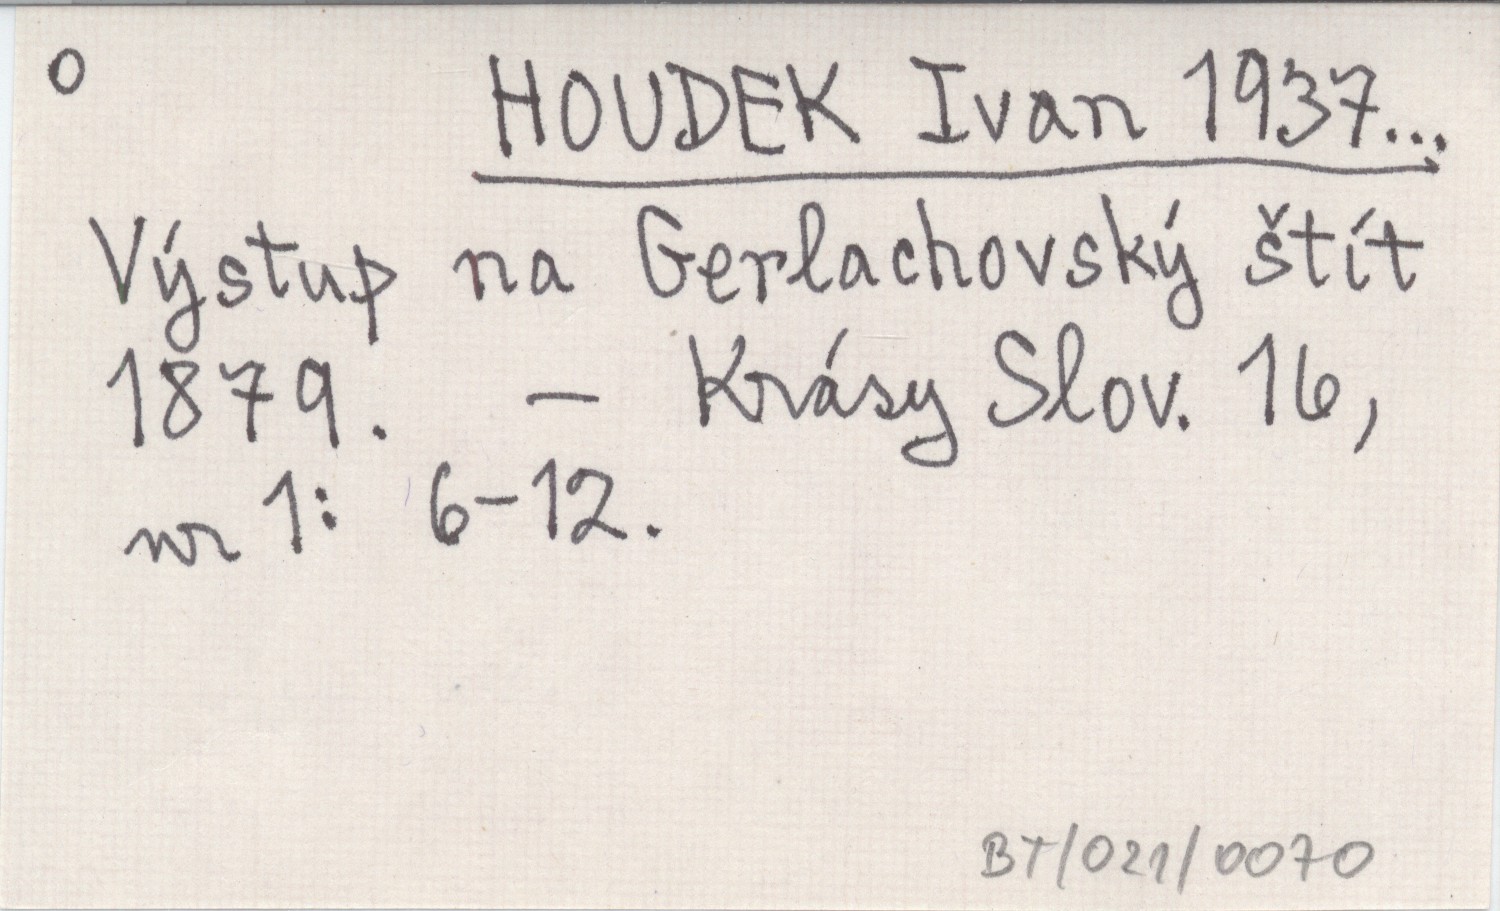 O
HOUDEK Ivan 1937...
Výstup na Gerlachovský štít
1879. – Krásy Slov. 16,
nr 1: 6–12.
BT/021/0070